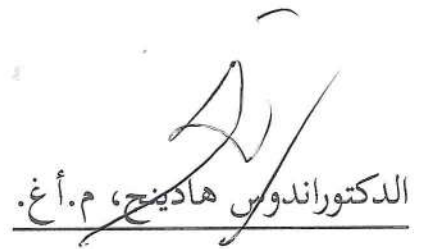 الدكتوراندوس هادينج، م.أغ.